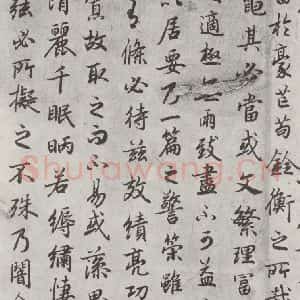 留於豪芒苟銓衡之所裁
繩其必當或文繁理富
適極無兩致盡不可益
居要乃一篇之警策雖
有條必待茲效績亮功
寡故取足不易或藻思
清麗千眠昞若縟繡悽
絃必所擬之不殊乃闇合
Shufawang.cn